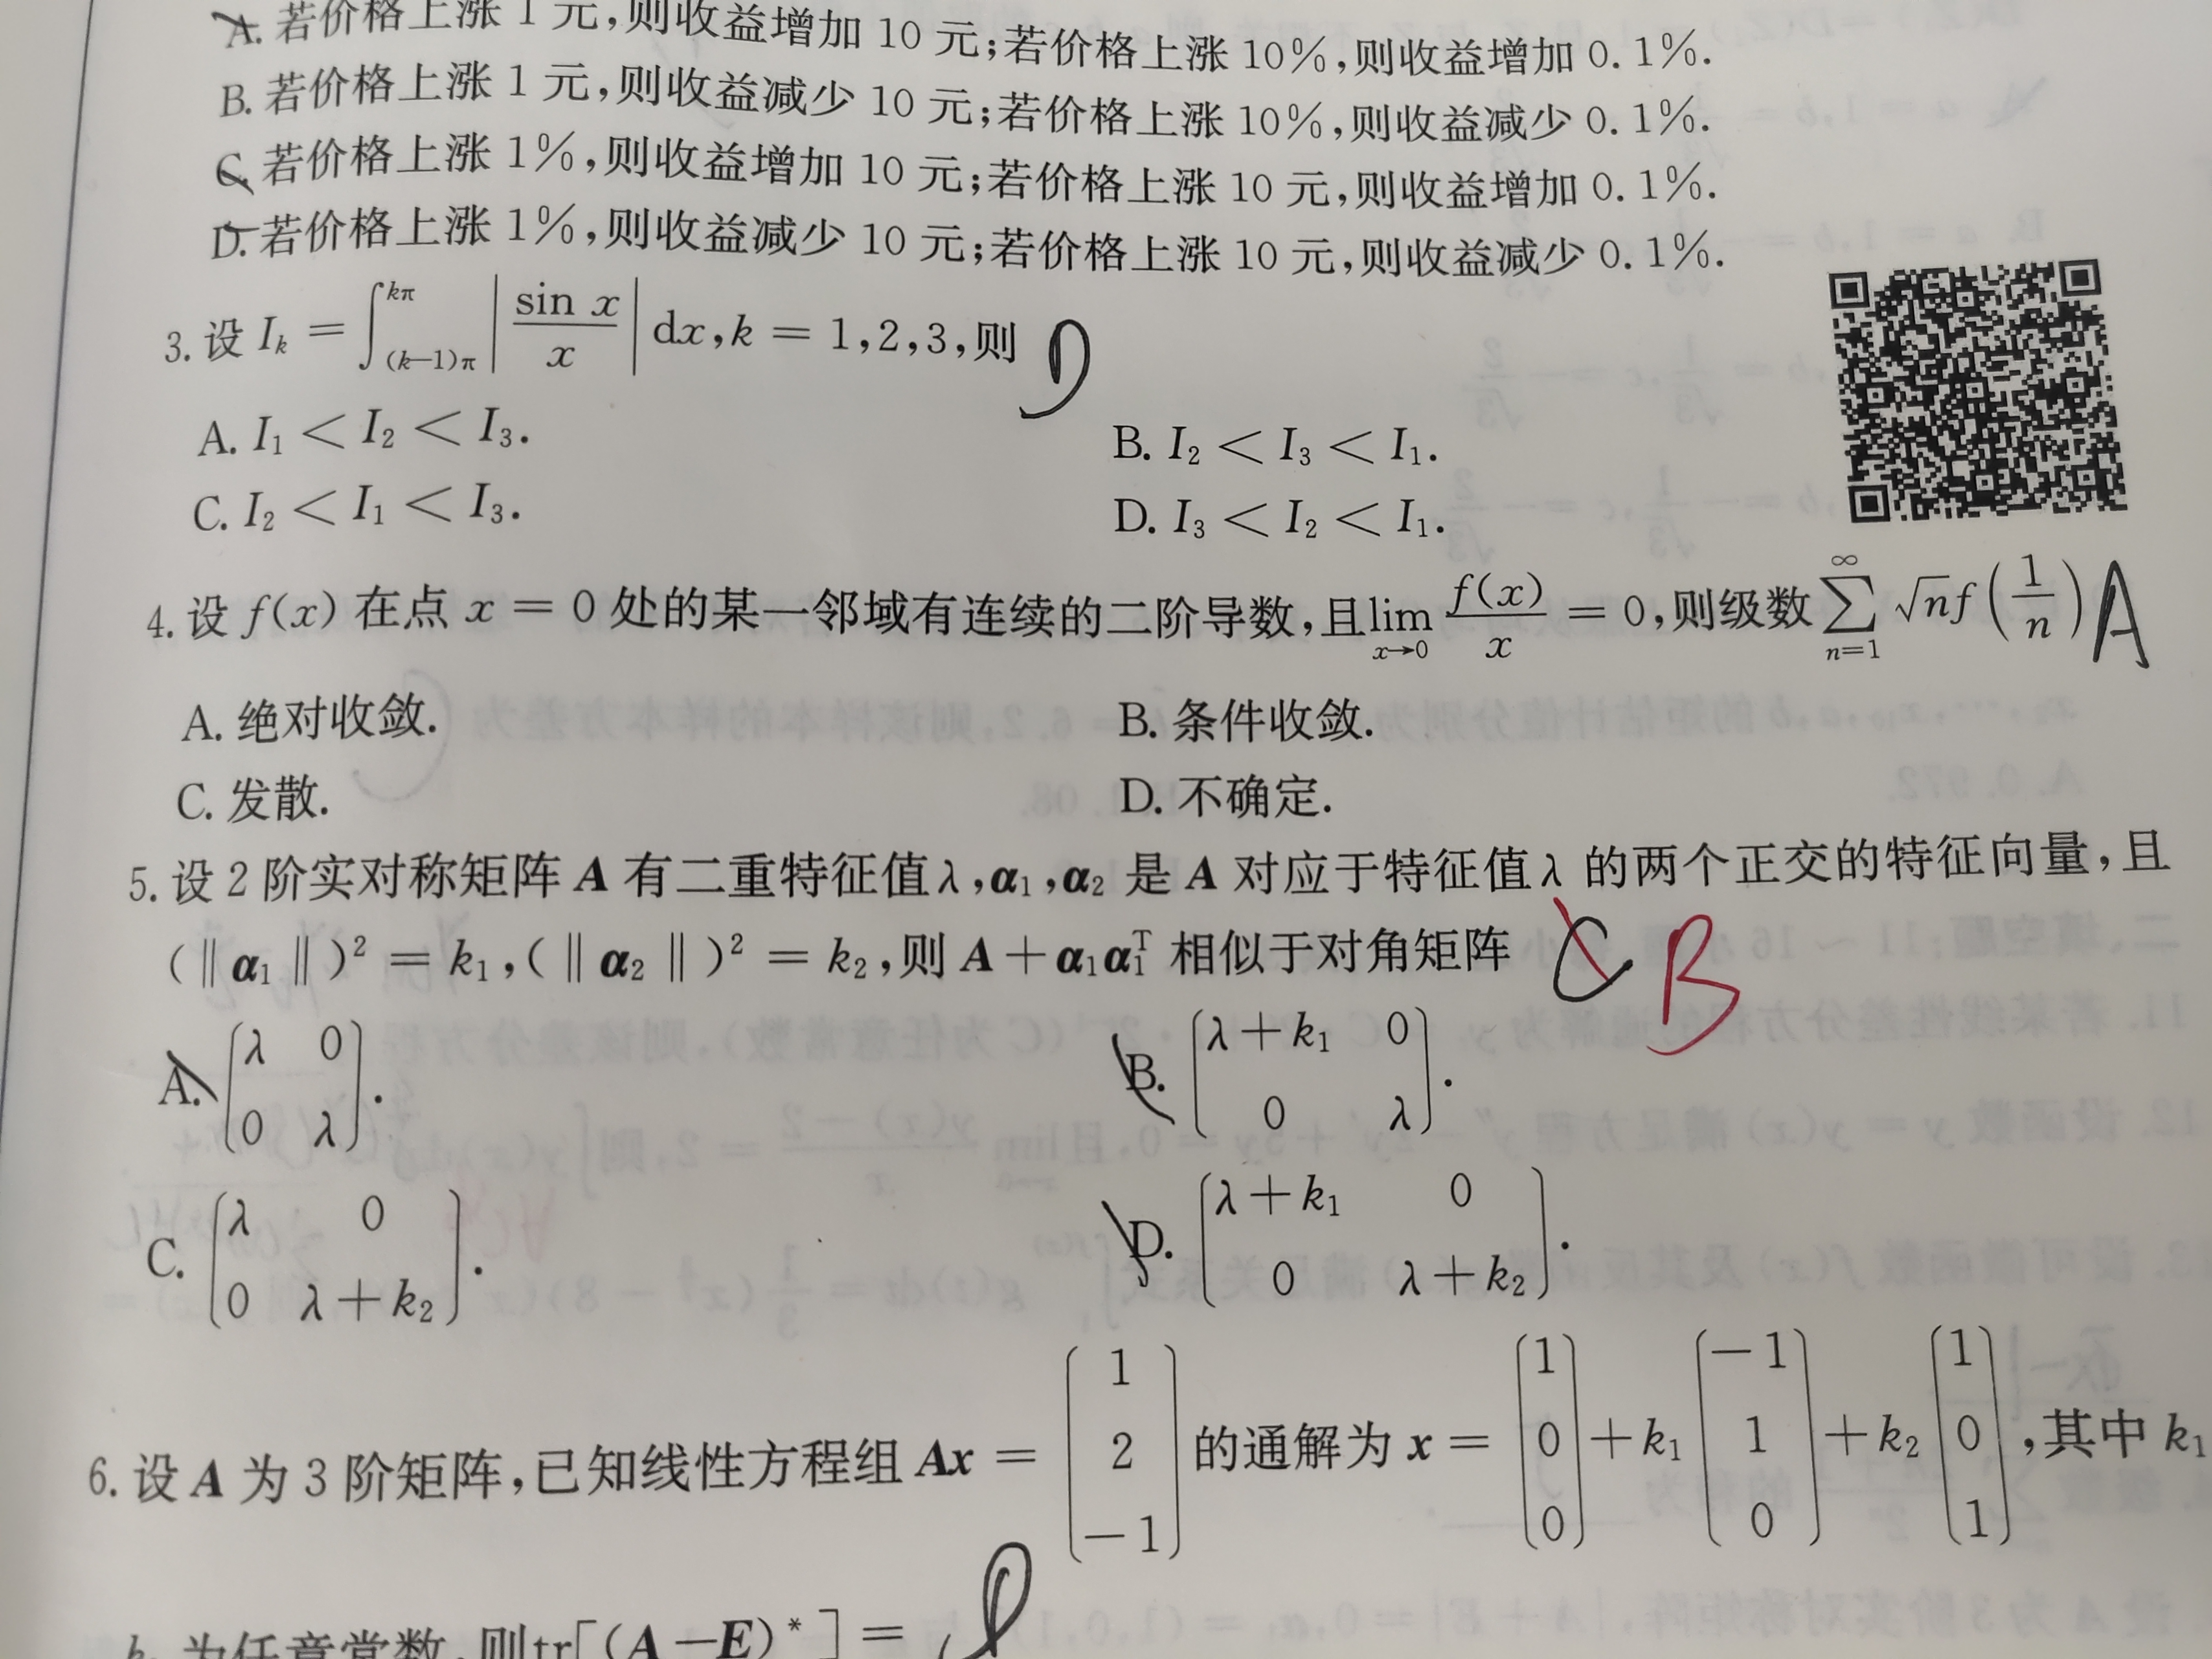 A. 若价格上涨 1 元,则收益增加 10 元;若价格上涨 10%,则收益增加 0.1%.
B. 若价格上涨 1 元,则收益减少 10 元;若价格上涨 10%,则收益减少 0.1%.
C. 若价格上涨 1%,则收益增加 10 元;若价格上涨 10 元,则收益增加 0.1%.
D. 若价格上涨 1%,则收益减少 10 元;若价格上涨 10 元,则收益减少 0.1%.
3. 设 I_k = ∫_{(k-1)π}^{kπ} |sin x / x| dx, k = 1,2,3,则 D
A. I₁ < I₂ < I₃. B. I₂ < I₃ < I₁.
C. I₂ < I₁ < I₃. D. I₃ < I₂ < I₁.
4. 设 f(x) 在点 x = 0 处的某一邻域有连续的二阶导数,且 lim_{x→0} f(x)/x = 0,则级数 ∑_{n=1}^{∞} √n f(1/n) A
A. 绝对收敛. B. 条件收敛.
C. 发散. D. 不确定.
5. 设 2 阶实对称矩阵 A 有二重特征值 λ, α₁, α₂ 是 A 对应于特征值 λ 的两个正交的特征向量,且
(‖α₁‖)² = k₁, (‖α₂‖)² = k₂,则 A + α₁α₁ᵀ 相似于对角矩阵 C B
A. (λ 0; 0 λ). B. (λ+k₁ 0; 0 λ).
C. (λ 0; 0 λ+k₂). D. (λ+k₁ 0; 0 λ+k₂).
6. 设 A 为 3 阶矩阵,已知线性方程组 Ax = (1; 2; -1) 的通解为 x = (1; 0; 0) + k₁(-1; 1; 0) + k₂(1; 0; 1),其中 k₁
为任意常数,则 tr[(A-E)*] =